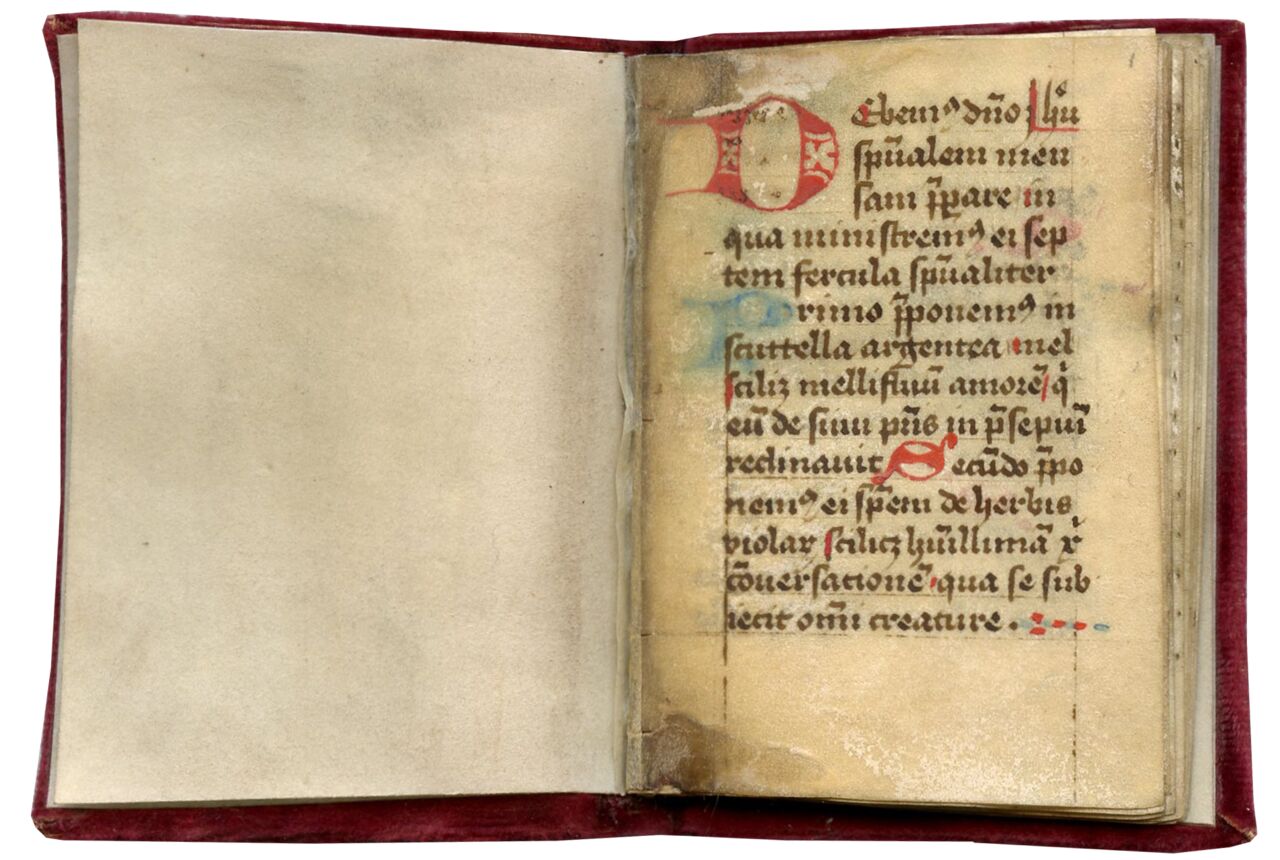 1
DEbemꝰ dño Ihũ
spũalem men
sam p̃pare in
qua ministremꝰ ei sep
tem fercula spũaliter
Primo p̃ponemꝰ in
scuttella argentea mel
sciliz mellifluũ amorẽ q̇
eũ de sinu pr̃is in p̃sepiũ
reclinauit Secũdo p̃po
nemꝰ ei sp̃em de herbis
violaꝝ scilicz hũillimã
cõuersationẽ qua se sub
iecit om̃i creature .